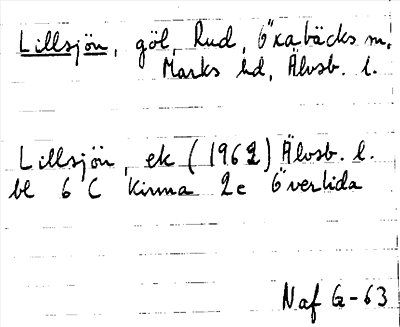 Lillsjön, göl, Rud, Öxabäcks sn,
Marks hd, Älvsb. l.
Lillsjön, ek (1962) Älvsb. l.
bl 6 C Kinna 2e Överlida
Naf G-63